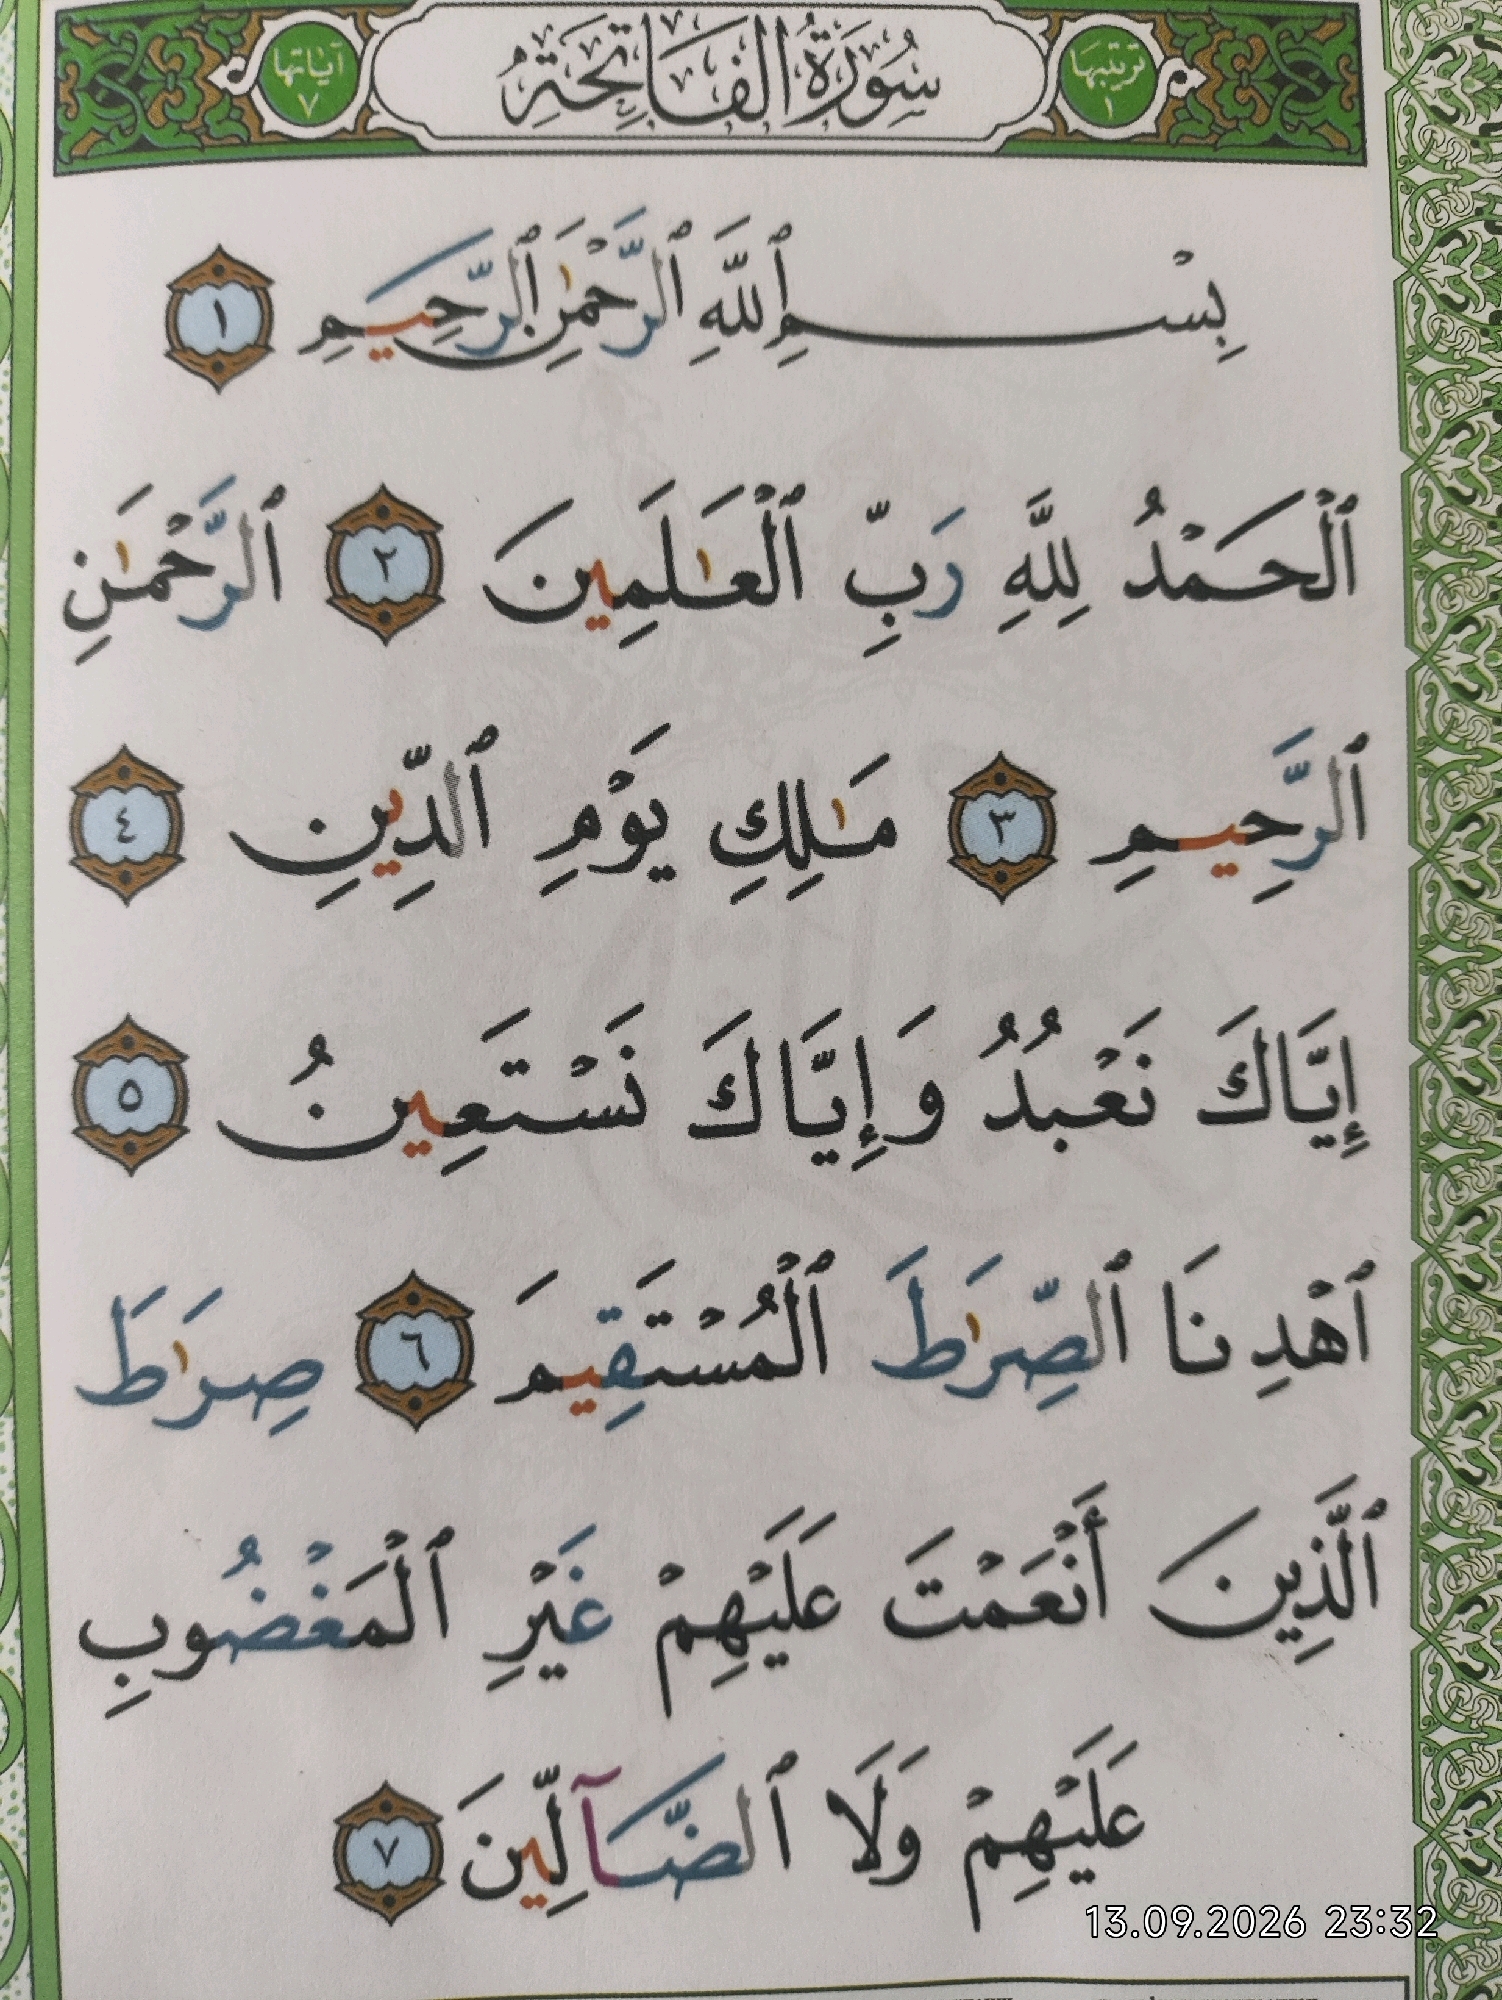 ترتيبها ١
سُورَةُ الفَاتِحَةِ
آياتها ٧
بِسْمِ ٱللَّهِ ٱلرَّحْمَٰنِ ٱلرَّحِيمِ ١
ٱلْحَمْدُ لِلَّهِ رَبِّ ٱلْعَٰلَمِينَ ٢ ٱلرَّحْمَٰنِ
ٱلرَّحِيمِ ٣ مَٰلِكِ يَوْمِ ٱلدِّينِ ٤
إِيَّاكَ نَعْبُدُ وَإِيَّاكَ نَسْتَعِينُ ٥
ٱهْدِنَا ٱلصِّرَٰطَ ٱلْمُسْتَقِيمَ ٦ صِرَٰطَ
ٱلَّذِينَ أَنْعَمْتَ عَلَيْهِمْ غَيْرِ ٱلْمَغْضُوبِ
عَلَيْهِمْ وَلَا ٱلضَّآلِّينَ ٧
13.09.2026 23:32